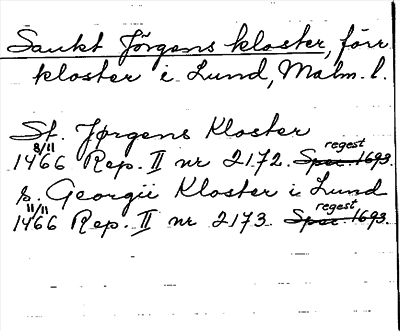 Sankt Jörgens kloster, förr
kloster i Lund, Malm. l.
St. Jørgens Kloster
8/11 1466 Rep. II nr 2172. regest Spec. 1693.
s. Georgii Kloster i Lund
11/11 1466 Rep. II nr 2173 regest Spec. 1693.